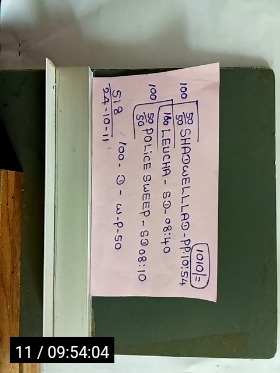 1010=
100 50/50 SHADWELLLAD-PP10:54
100 LEUCHA - SD-08:40
100 50/50 POLICE SWEEP-SD08:10
100-D-W-P-50
518
24-10-11
11 / 09:54:04